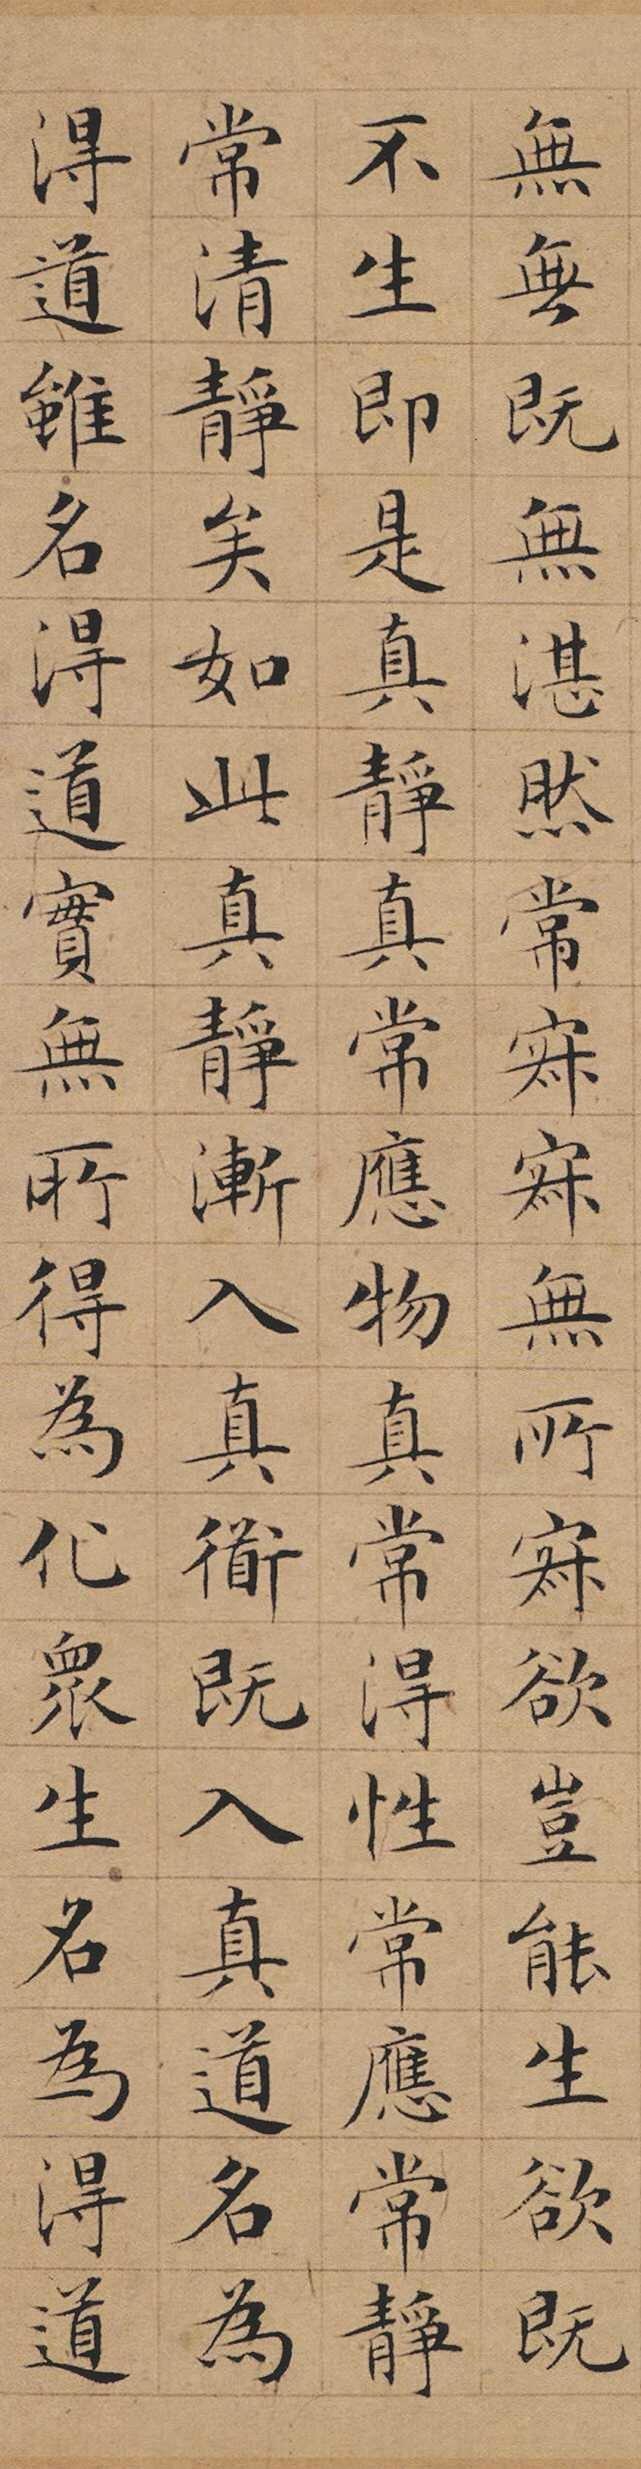 無無既無湛然常寂寂無所寂欲豈能生欲既
不生即是真靜真常應物真常得性常應常靜
常清靜矣如此真靜漸入真衜既入真道名為
得道雖名得道實無所得為化衆生名為得道